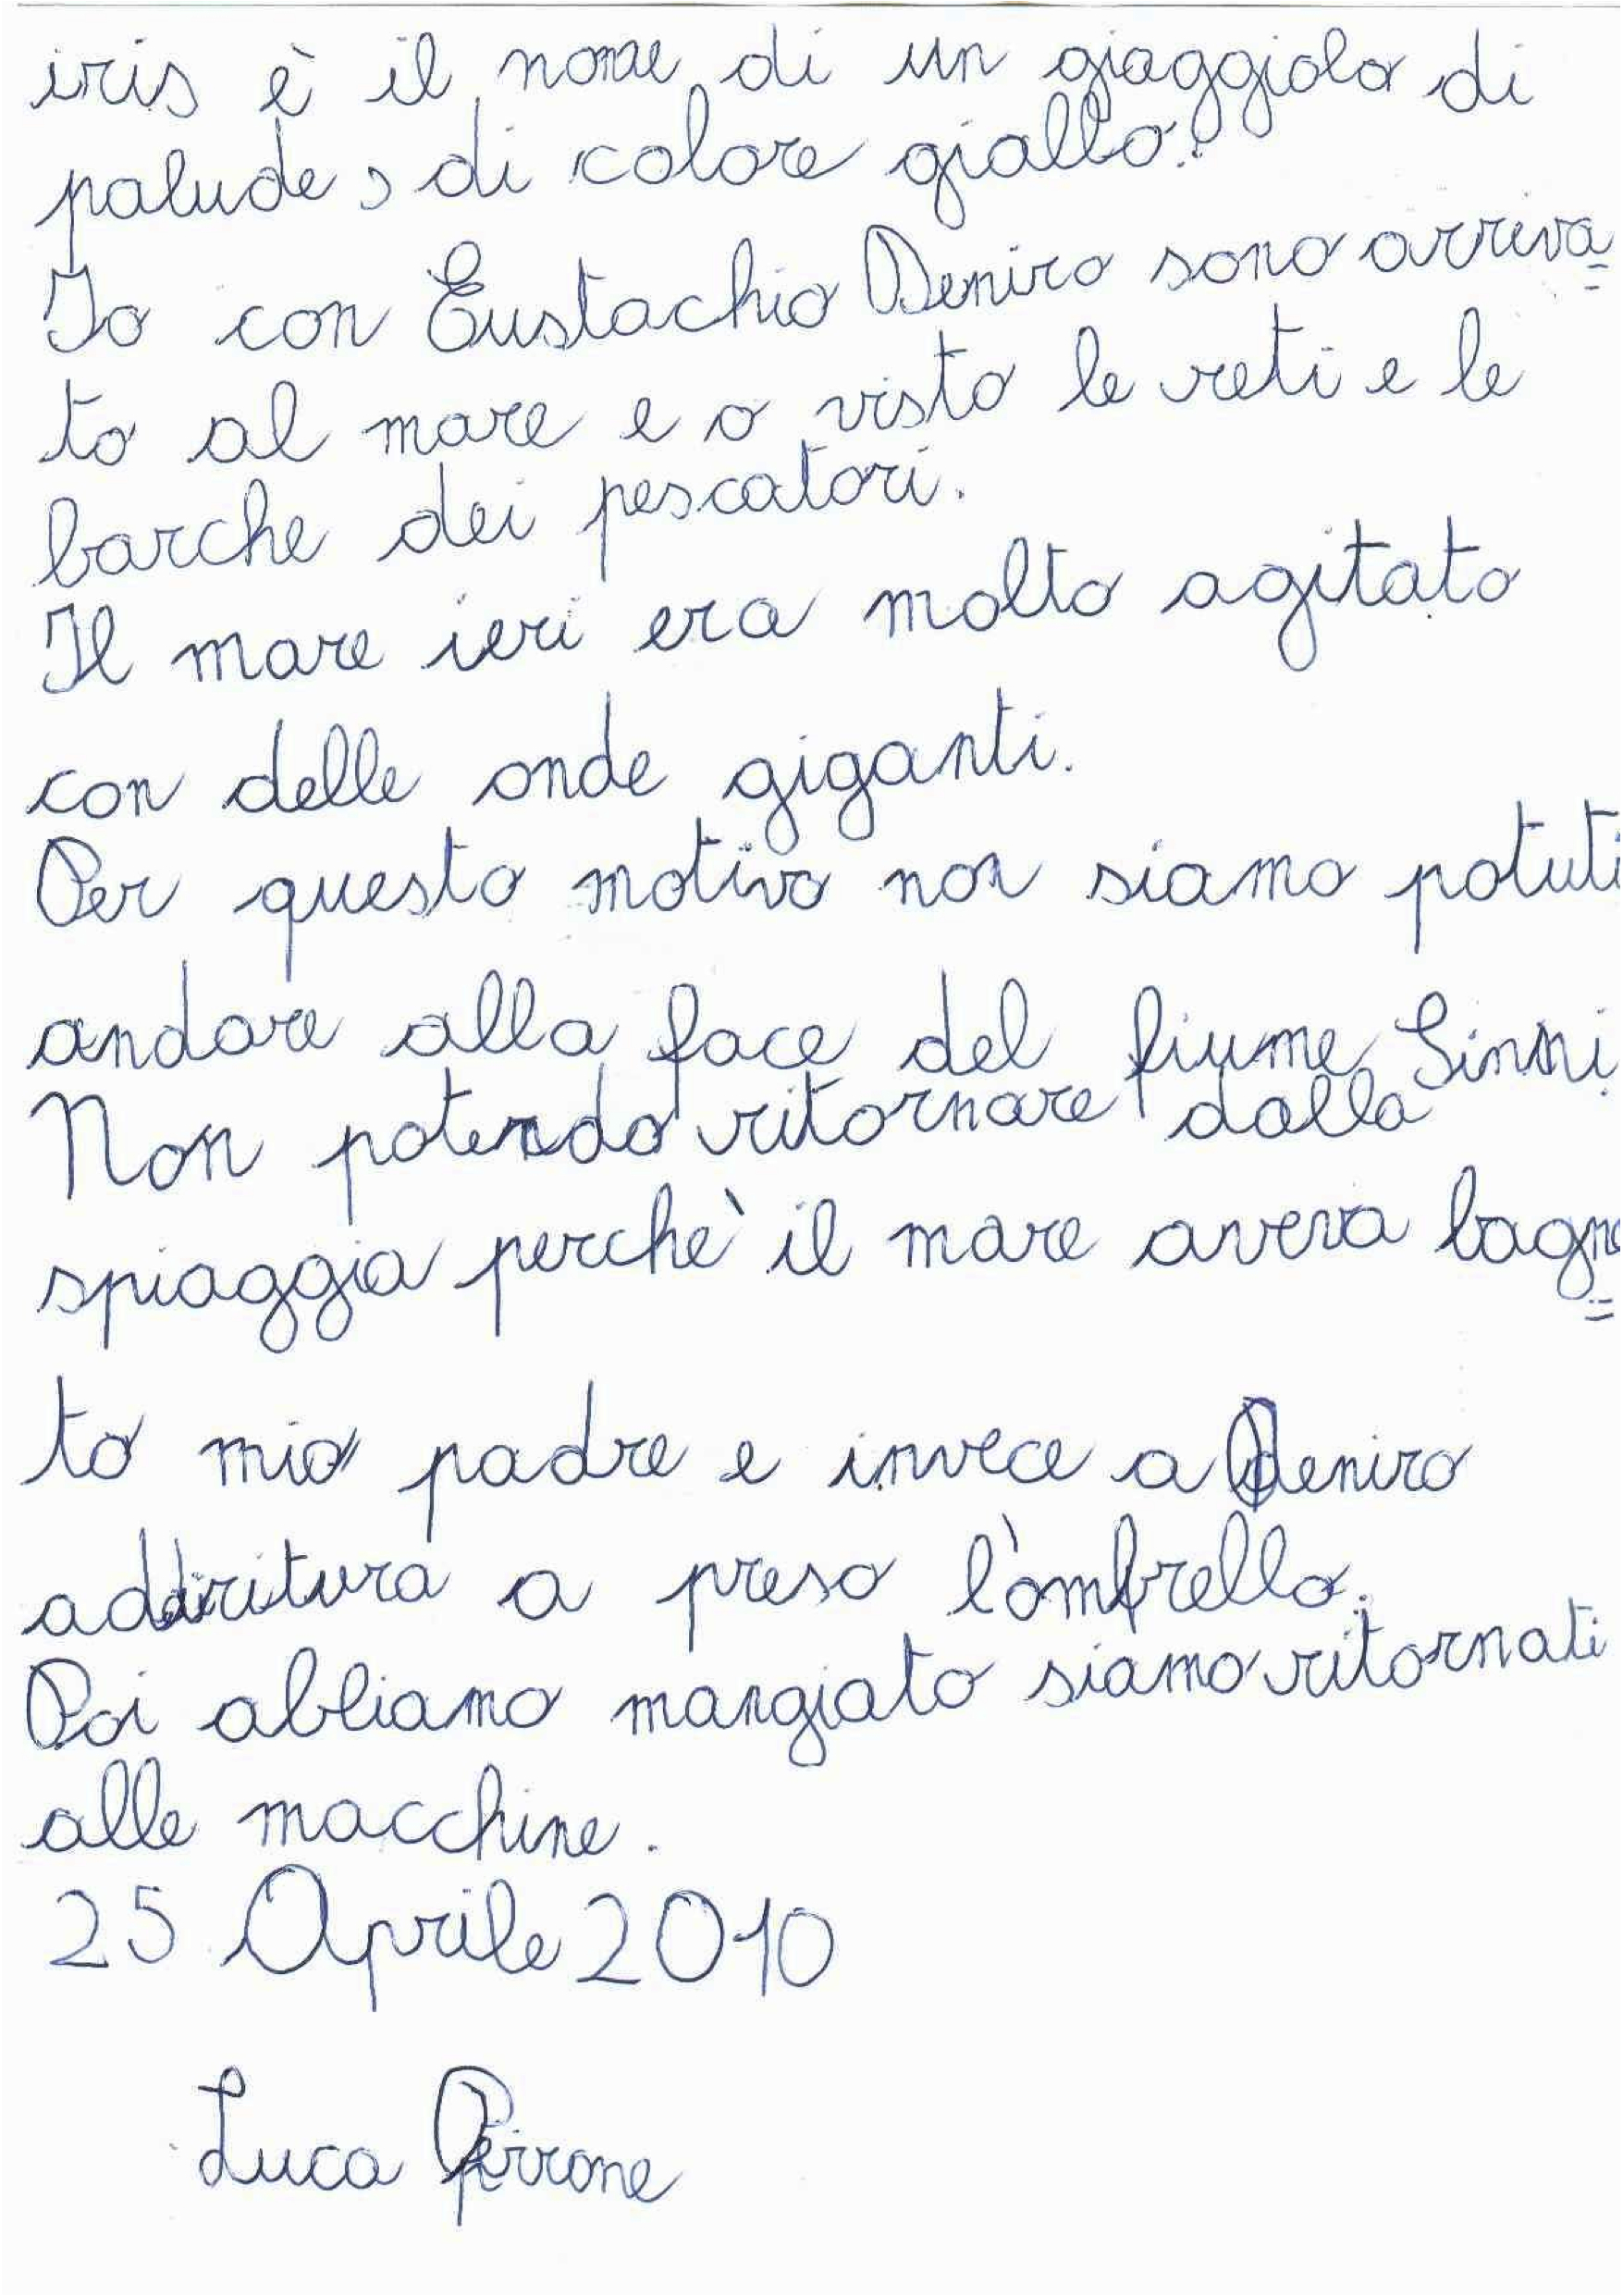 iris è il nome di un giaggiolo di
palude, di colore giallo.
Io con Eustachio Deniro sono arriva=
to al mare e o visto le reti e le
barche dei pescatori.
Il mare ieri era molto agitato
con delle onde giganti.
Per questo motivo non siamo potuti
andare alla foce del fiume Sinni.
Non potendo ritornare dalla
spiaggia perchè il mare aveva bagna=
to mio padre e invece a Deniro
addiritura a preso l'ombrello.
Poi abbiamo mangiato siamo ritornati
alle macchine.
25 Aprile 2010
Luca Perrone